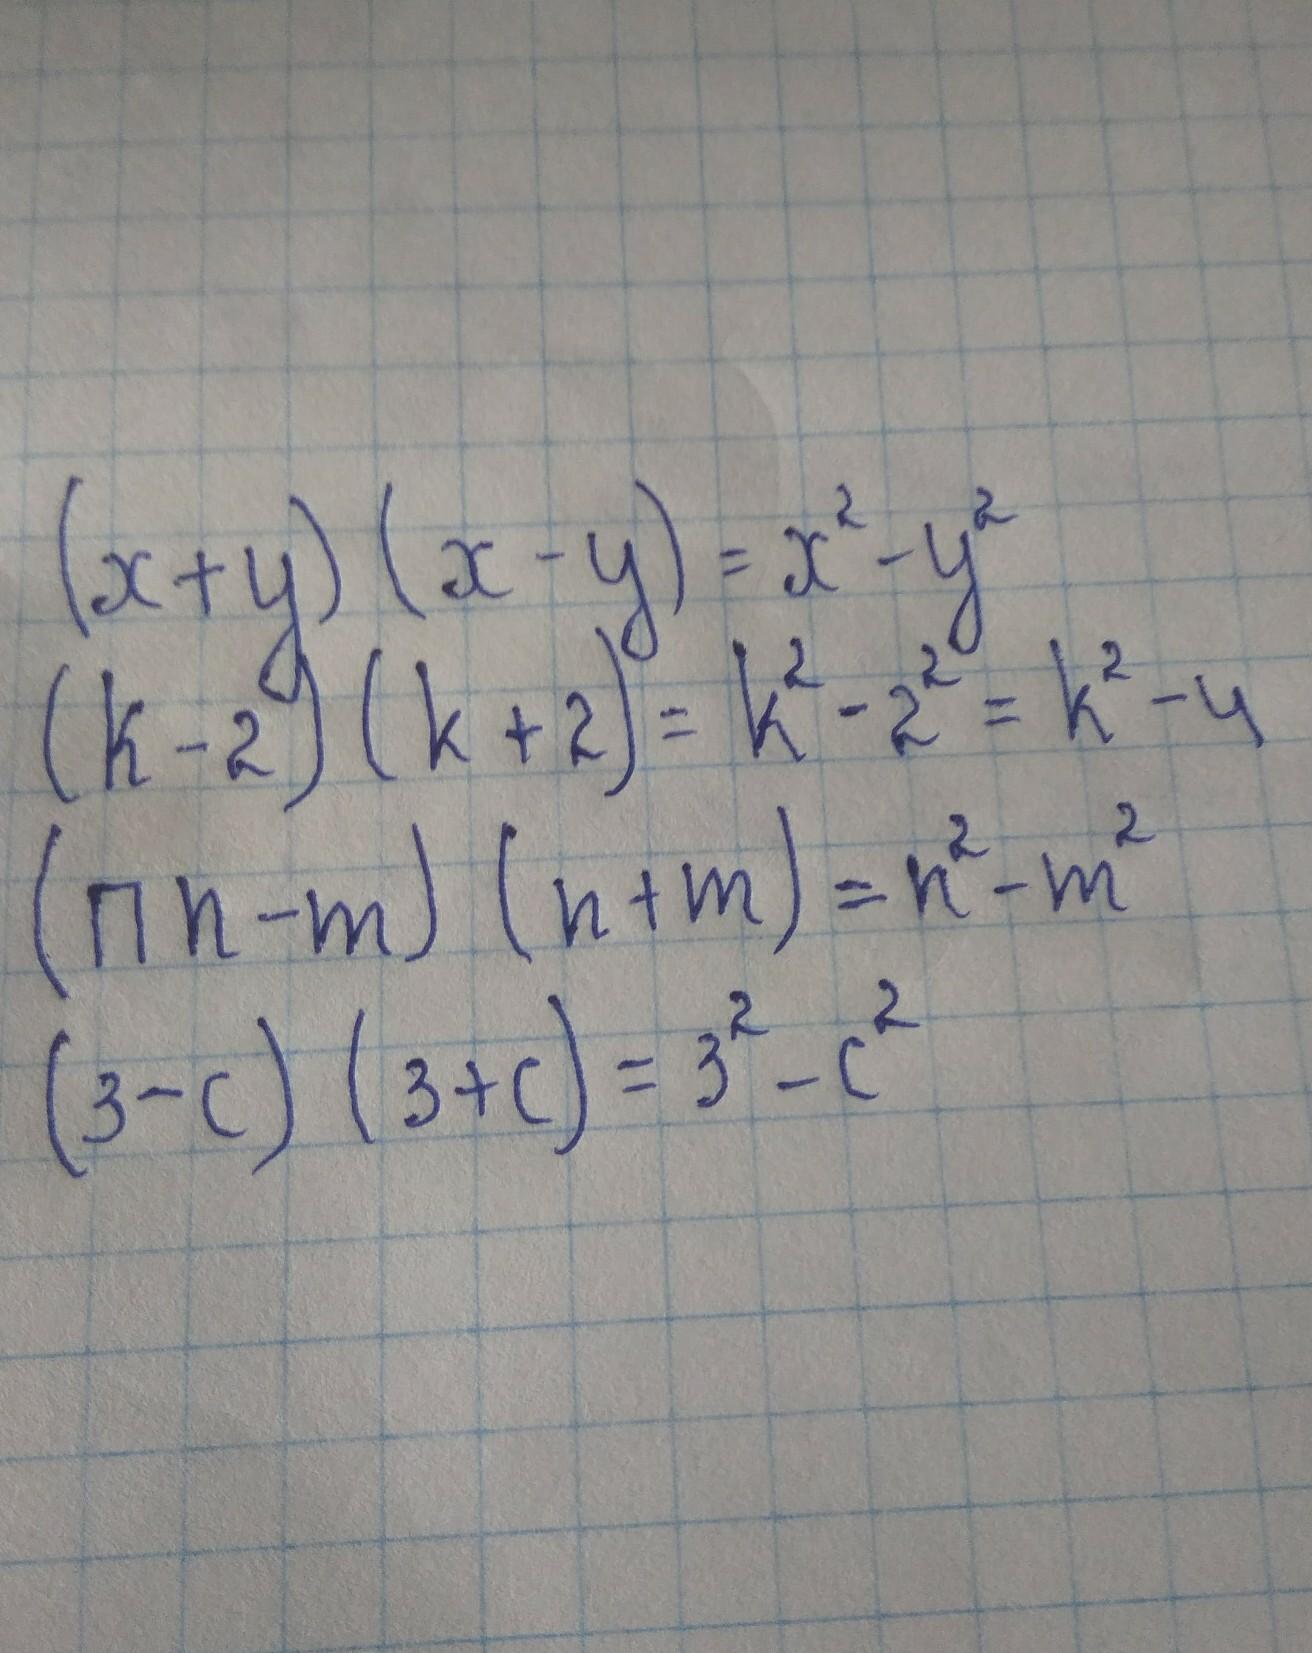 (x+y) (x-y) = x²-y²
(k-2) (k+2) = k²-2² = k²-4
(п n-m) (n+m) = n²-m²
(3-c) (3+c) = 3²-c²